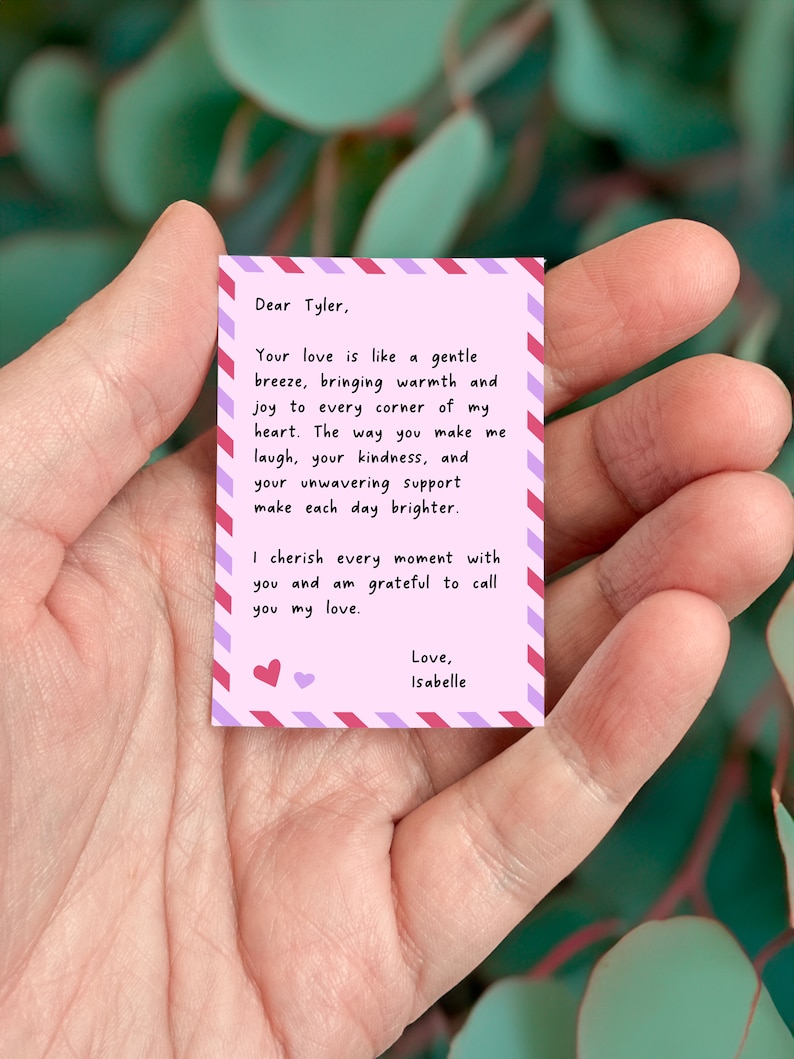 Dear Tyler,
Your love is like a gentle
breeze, bringing warmth and
joy to every corner of my
heart. The way you make me
laugh, your kindness, and
your unwavering support
make each day brighter.
I cherish every moment with
you and am grateful to call
you my love.
Love,
Isabelle